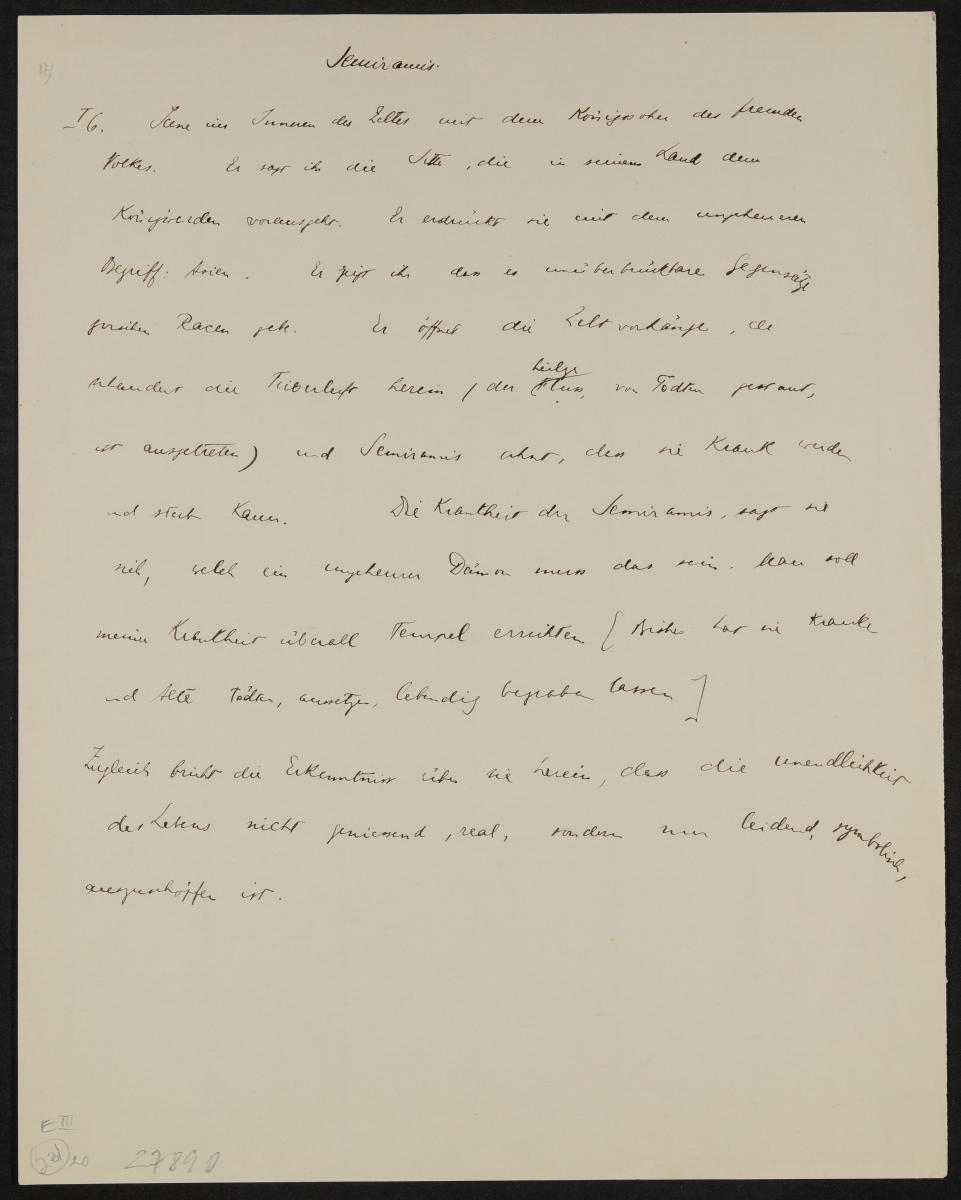 17)
Semiramis.
I 6. Scene im Inneren des Zeltes mit dem Königssohn des fremden
Volkes. Er sagt ihr die Sitte, die in seinem Land dem
Königwerden vorausgeht. Er erdrückt sie mit dem ungeheueren
Begriff: Asien. Er zeigt ihr dass es unüberbrückbare Gegensätze
zwischen Racen gebe. Er öffnet die Zeltvorhänge, da
schaudert die Fieberluft herein (der heilge Fluss, von Todten gestaut,
ist ausgetreten) und Semiramis ahnt, dass sie Krank werden
und sterben Kann. Die Krankheit der Semiramis, sagt sie
sich, welch ein ungeheurer Dämon muss das sein. Man soll
meiner Krankheit überall Tempel errichten [Bisher hat sie Kranke
und Alte tödten, aussetzen, lebendig begraben lassen]
Zugleich bricht die Erkenntniss über sie herein, dass die Unendlichkeit
des Lebens nicht geniessend, real, sondern nur leidend, symbolisch,
auszuschöpfen ist.
E III
20 27890